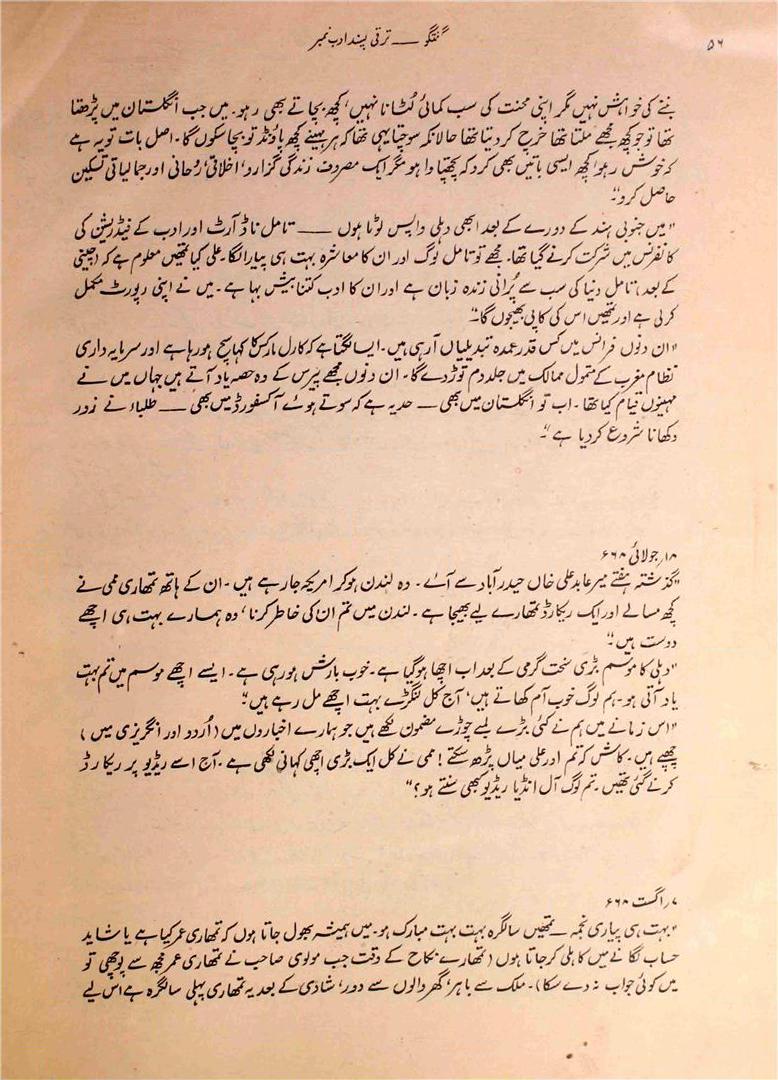 ۵۶
گفتگو — ترقی پسند ادب نمبر
بننے کی خواہش نہیں مگر اپنی محنت کی سب کمائی لُٹانا نہیں، کچھ بچاتے بھی رہو۔ میں جب انگلستان میں پڑھتا
تھا تو جو کچھ مجھے ملتا تھا خرچ کر دیتا تھا حالانکہ سوچتا یہی تھا کہ ہر مہینے کچھ پاؤنڈ تو بچا سکوں گا۔ اصل بات تو یہ ہے
کہ خوش رہو، کچھ ایسی باتیں بھی کرو کہ پچھتاوا ہو مگر ایک مصروف زندگی گزارو، اخلاقی، رُحانی اور جمالیاتی تسکین
حاصل کرو"۔
"میں جنوبی ہند کے دورے کے بعد ابھی دہلی واپس لوٹا ہوں — تامل ناڈ آرٹ اور ادب کے فیڈریشن کی
کانفرنس میں شرکت کرنے گیا تھا۔ مجھے تو تامل لوگ اور ان کا معاشرہ بہت ہی پیارا لگا۔ علی کیا تمھیں معلوم ہے کہ (چینی
کے بعد) تامل دنیا کی سب سے پُرانی زندہ زبان ہے اور ان کا ادب کتنا بیش بہا ہے۔ میں نے اپنی رپورٹ مکمل
کر لی ہے اور تمھیں اس کی کاپی بھیجوں گا"۔
"ان دنوں فرانس میں کس قدر عمدہ تبدیلیاں آرہی ہیں۔ ایسا لگتا ہے کہ کارل مارکس کا کہا سچ ہو رہا ہے اور سرمایہ داری
نظام مغرب کے متمول ممالک میں جلد دم توڑ دے گا۔ ان دنوں مجھے پیرس کے وہ حصہ یاد آتے ہیں جہاں میں نے
مہینوں قیام کیا تھا۔ اب تو انگلستان میں بھی — حد یہ ہے کہ سوتے ہوئے آکسفورڈ میں بھی — طلباء نے زور
دکھانا شروع کر دیا ہے"۔
۱۸؍ جولائی ۶۶۸
"گذشتہ ہفتے میر عابد علی خاں حیدرآباد سے آئے۔ وہ لندن ہو کر امریکہ جا رہے ہیں۔ ان کے ہاتھ تمھاری ممی نے
کچھ مسالے اور ایک ریکارڈ تمھارے لیے بھیجا ہے۔ لندن میں تم ان کی خاطر کرنا، وہ ہمارے بہت ہی اچھے
دوست ہیں"۔
"دہلی کا موسم بڑی سخت گرمی کے بعد اب اچھا ہو گیا ہے۔ خوب بارش ہو رہی ہے۔ ایسے اچھے موسم میں تم بہت
یاد آتی ہو۔ ہم لوگ خوب آم کھاتے ہیں، آج کل لنگڑے بہت اچھے مل رہے ہیں"۔
"اس زمانے میں ہم نے کئی بڑے لمبے چوڑے مضمون لکھے ہیں جو ہمارے اخباروں میں (اُردو اور انگریزی میں)
چھپے ہیں۔ کاش کہ تم اور علی میاں پڑھ سکتے! ممی نے کل ایک بڑی اچھی کہانی لکھی ہے۔ آج اسے ریڈیو پر ریکارڈ
کرنے گئی تھیں۔ تم لوگ آل انڈیا ریڈیو کبھی سنتے ہو؟"
۷؍ اگست ۶۶۸
"بہت ہی پیاری نجمہ — تمھیں سالگرہ بہت بہت مبارک ہو۔ میں ہمیشہ بھول جاتا ہوں کہ تمھاری عمر کیا ہے یا شاید
حساب لگانے میں کاہلی کر جاتا ہوں (تمھارے نکاح کے وقت جب مولوی صاحب نے تمھاری عمر مجھ سے پوچھی تو
میں کوئی جواب نہ دے سکا)۔ ملک سے باہر، گھر والوں سے دور، شادی کے بعد یہ تمھاری پہلی سالگرہ ہے اس لیے